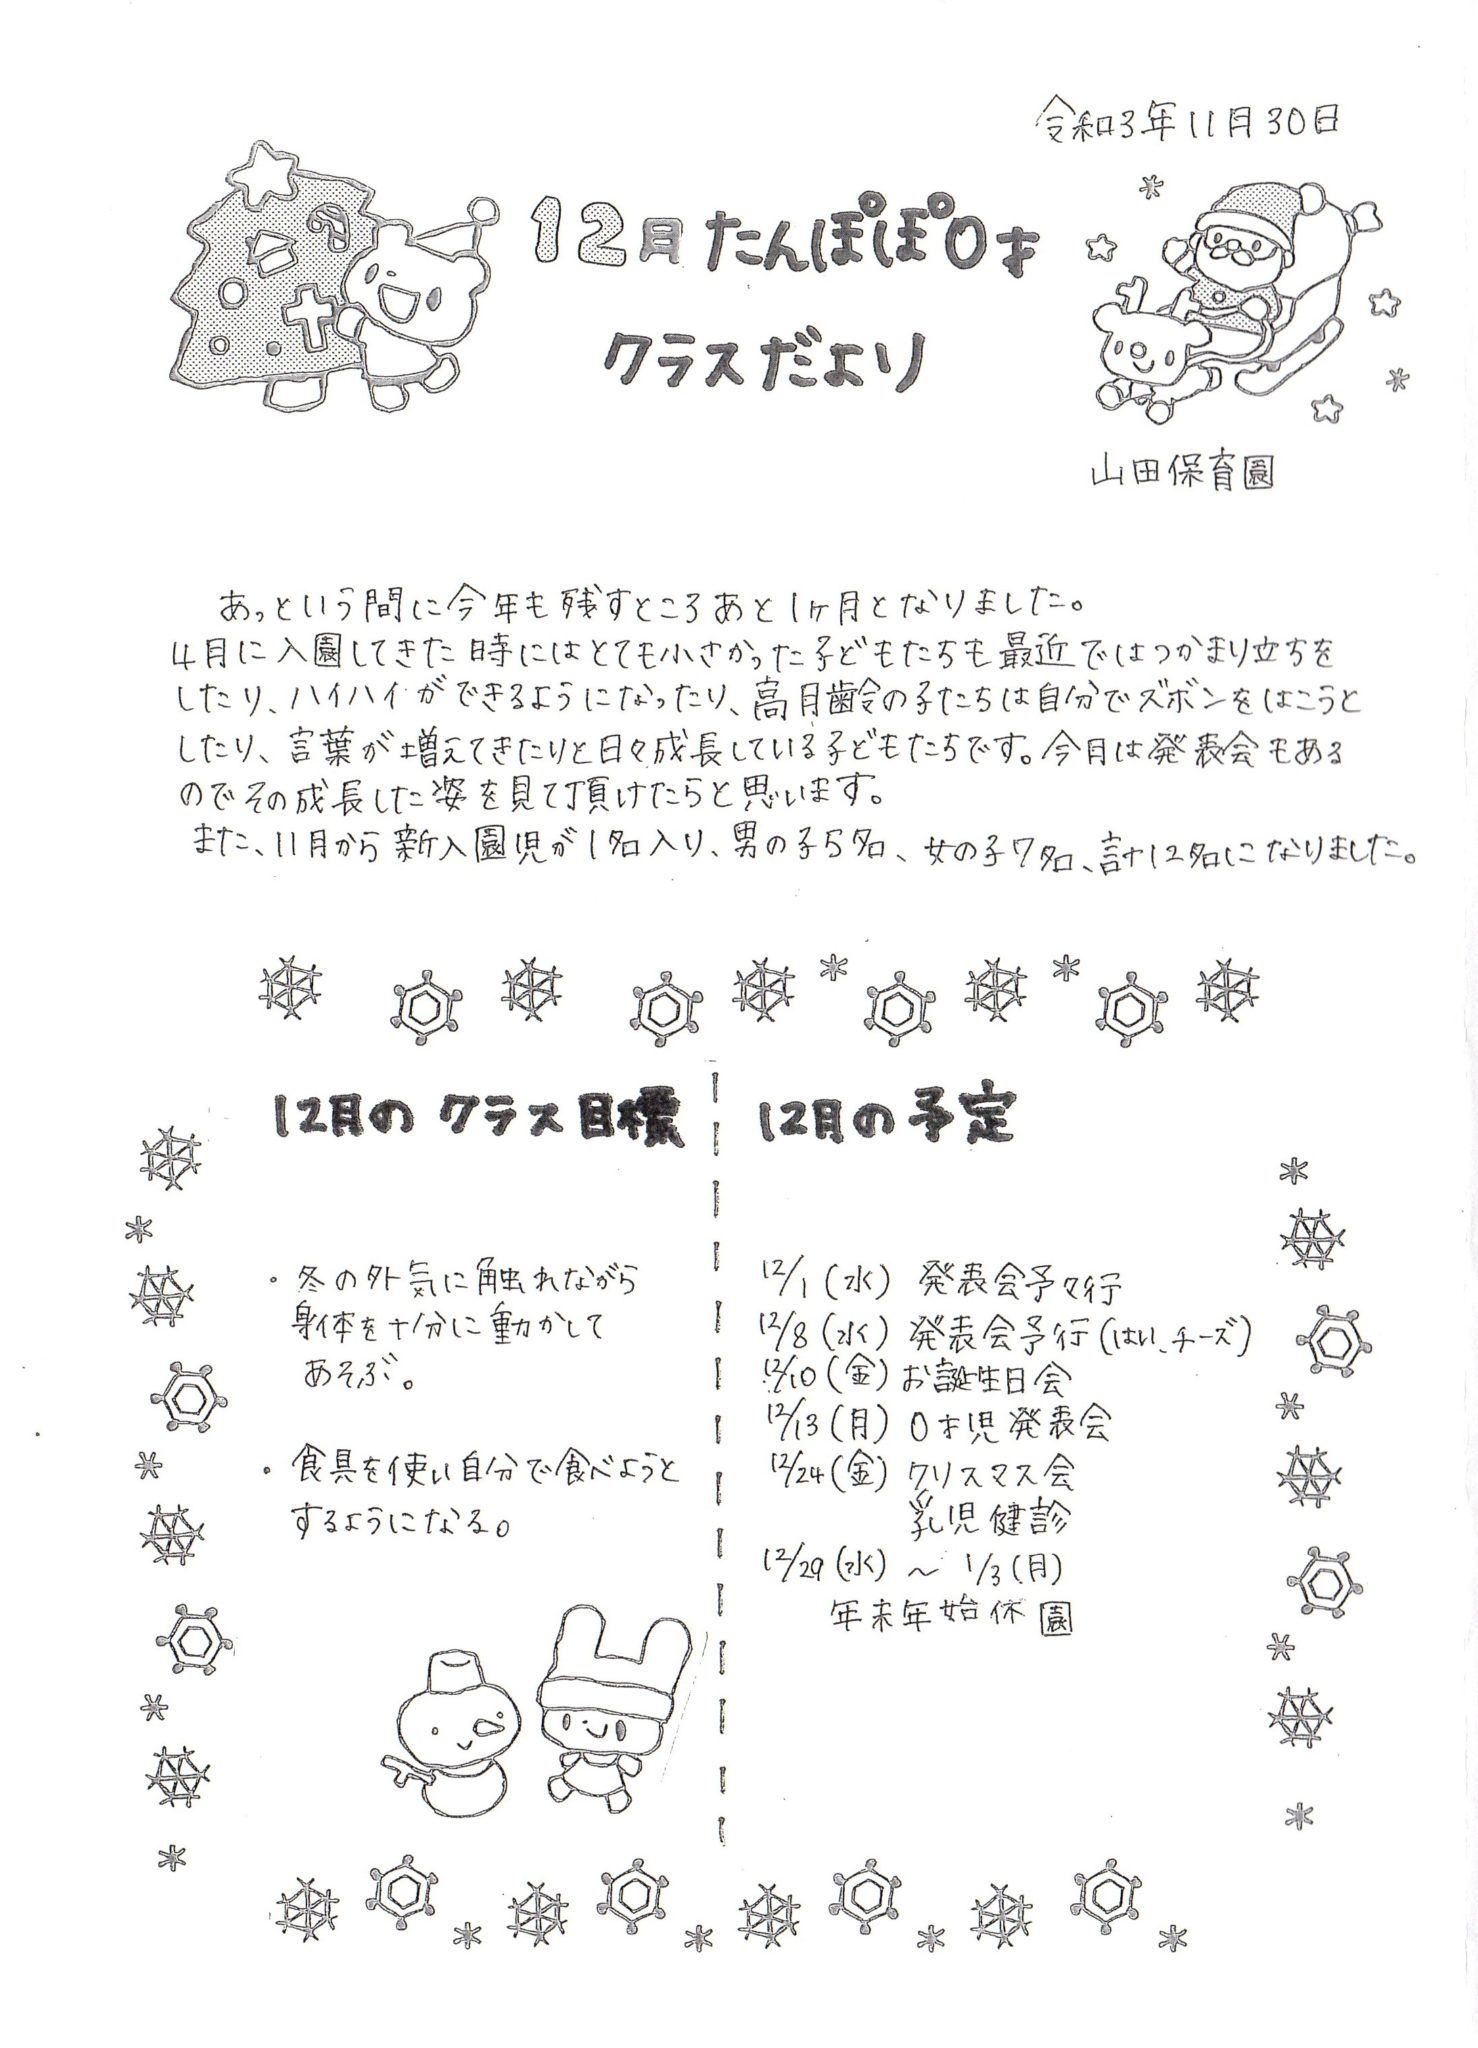 令和3年11月30日
12月たんぽぽ0才
クラスだより
山田保育園
あっという間に今年も残すところあと1ヶ月となりました。
4月に入園してきた時にはとても小さかった子どもたちも最近ではつかまり立ちを
したり、ハイハイができるようになったり、高月齢の子たちは自分でズボンをはこうと
したり、言葉が増えてきたりと日々成長している子どもたちです。今月は発表会もある
のでその成長した姿を見て頂けたらと思います。
また、11月から新入園児が1名入り、男の子5名、女の子7名、計12名になりました。
12月のクラス目標
・冬の外気に触れながら
身体を十分に動かして
あそぶ。
・食具を使い自分で食べようと
するようになる。
12月の予定
12/1(水) 発表会予々行
12/8(水) 発表会予行(はい、チーズ)
12/10(金) お誕生日会
12/13(月) 0才児発表会
12/24(金) クリスマス会
乳児健診
12/29(水) ～ 1/3(月)
年末年始休園